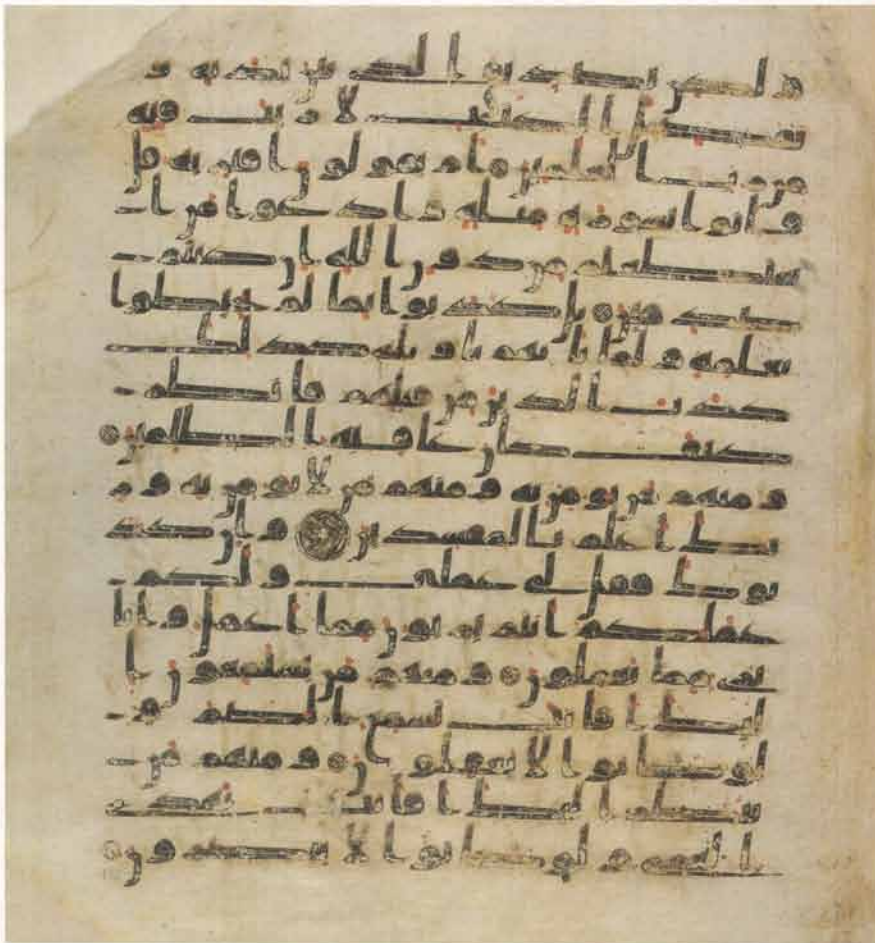 ه ولكن تصديق الذي بين يديه و
تفصيل الكتب لا ريب فيه
من رب العلمين ام يقولون افتريه قل
فاتوا بسورة مثله وادعوا من ا
ستطعتم من دون الله ان كنتم
صدقين بل كذبوا بما لم يحيطوا
بعلمه ولما ياتهم تاويله كذلك
كذب الذين من قبلهم فانظر
كيف كان عاقبة الظلمين
ومنهم من يومن به ومنهم من لا يومن به ور
بك اعلم بالمفسدين وان كذ
بوك فقل لي عملي ولكم
عملكم انتم بريون مما اعمل وانا
بري مما تعملون ومنهم من يستمعون ا
ليك افانت تسمع الصم و
لو كانوا لا يعقلون ومنهم من
ينظر اليك افانت تهدي
العمي ولو كانوا لا يبصرون